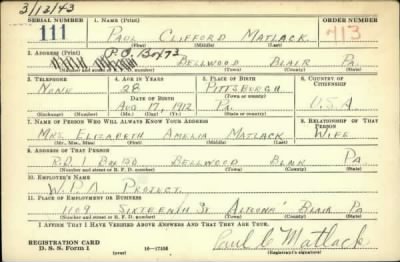 3/13/43
SERIAL NUMBER 1. NAME (Print) ORDER NUMBER
111 PAUL CLIFFORD MATLACK 713
(First) (Middle) (Last)
2. ADDRESS (Print) P.O. Box 73
BELLWOOD BLAIR PA.
(Number and street or R. F. D. number) (Town) (County) (State)
3. TELEPHONE 4. AGE IN YEARS 5. PLACE OF BIRTH 6. COUNTRY OF CITIZENSHIP
NONE 28 PITTSBURGH
DATE OF BIRTH (Town or county)
AUG 17, 1912 PA. U.S.A
(Exchange) (Number) (Mo.) (Day) (Yr.) (State or country)
7. NAME OF PERSON WHO WILL ALWAYS KNOW YOUR ADDRESS 8. RELATIONSHIP OF THAT PERSON
MRS. ELIZABETH AMELIA MATLACK WIFE
(Mr., Mrs., Miss) (First) (Middle) (Last)
9. ADDRESS OF THAT PERSON
R.D. 1 BELLWOOD BLAIR PA.
(Number and street or R. F. D. number) (Town) (County) (State)
10. EMPLOYER'S NAME
W.P.A. PROJECT.
11. PLACE OF EMPLOYMENT OR BUSINESS
1109 SIXTEENTH ST ALTOONA BLAIR PA
(Number and street or R. F. D. number) (Town) (County) (State)
I AFFIRM THAT I HAVE VERIFIED ABOVE ANSWERS AND THAT THEY ARE TRUE.
REGISTRATION CARD
D. S. S. Form 1 16—17105 Paul C Matlack
(Registrant's signature)